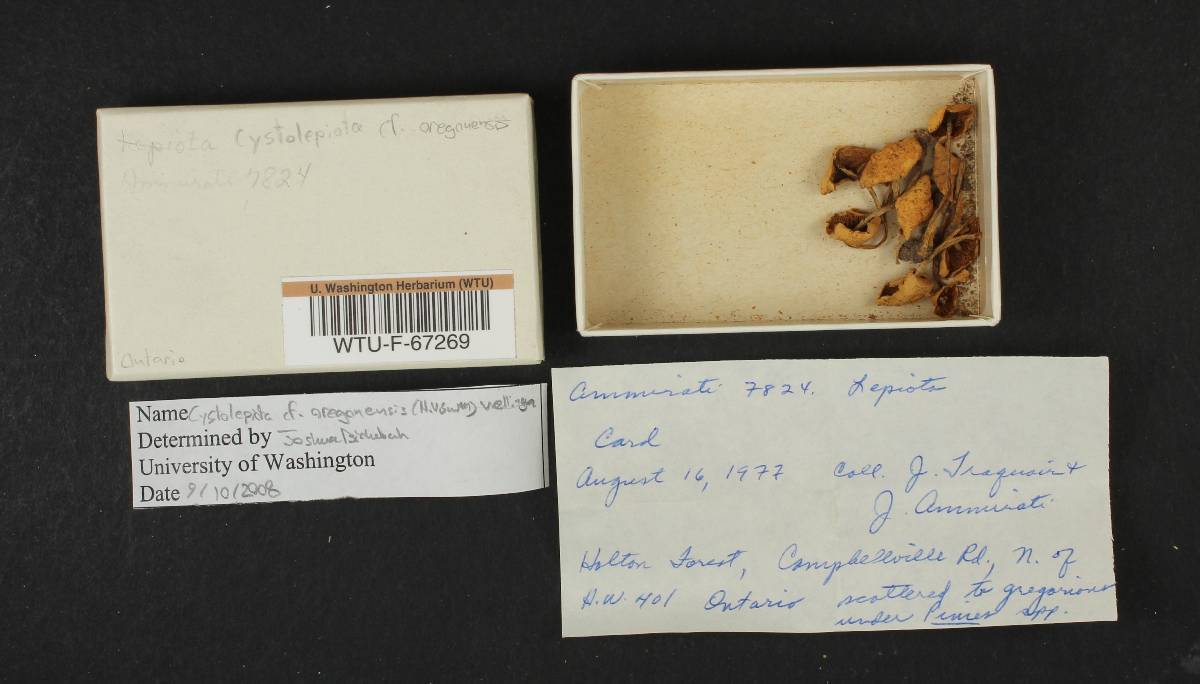 Lepiota Cystolepiota cf. oregonensis
Ammirati 7824
U. Washington Herbarium (WTU)
WTU-F-67269
Ontario
Name Cystolepiota cf. oregonensis (H.V. Smith) Vellinga
Determined by Joshua Birkebak
University of Washington
Date 9/10/2008
Ammirati 7824. Lepiota
Card
August 16, 1977 Coll. J. Traquair &
J. Ammirati
Halton Forest, Campbellville Rd., N. of
H.W. 401 Ontario scattered to gregarious
under Pinus spp.